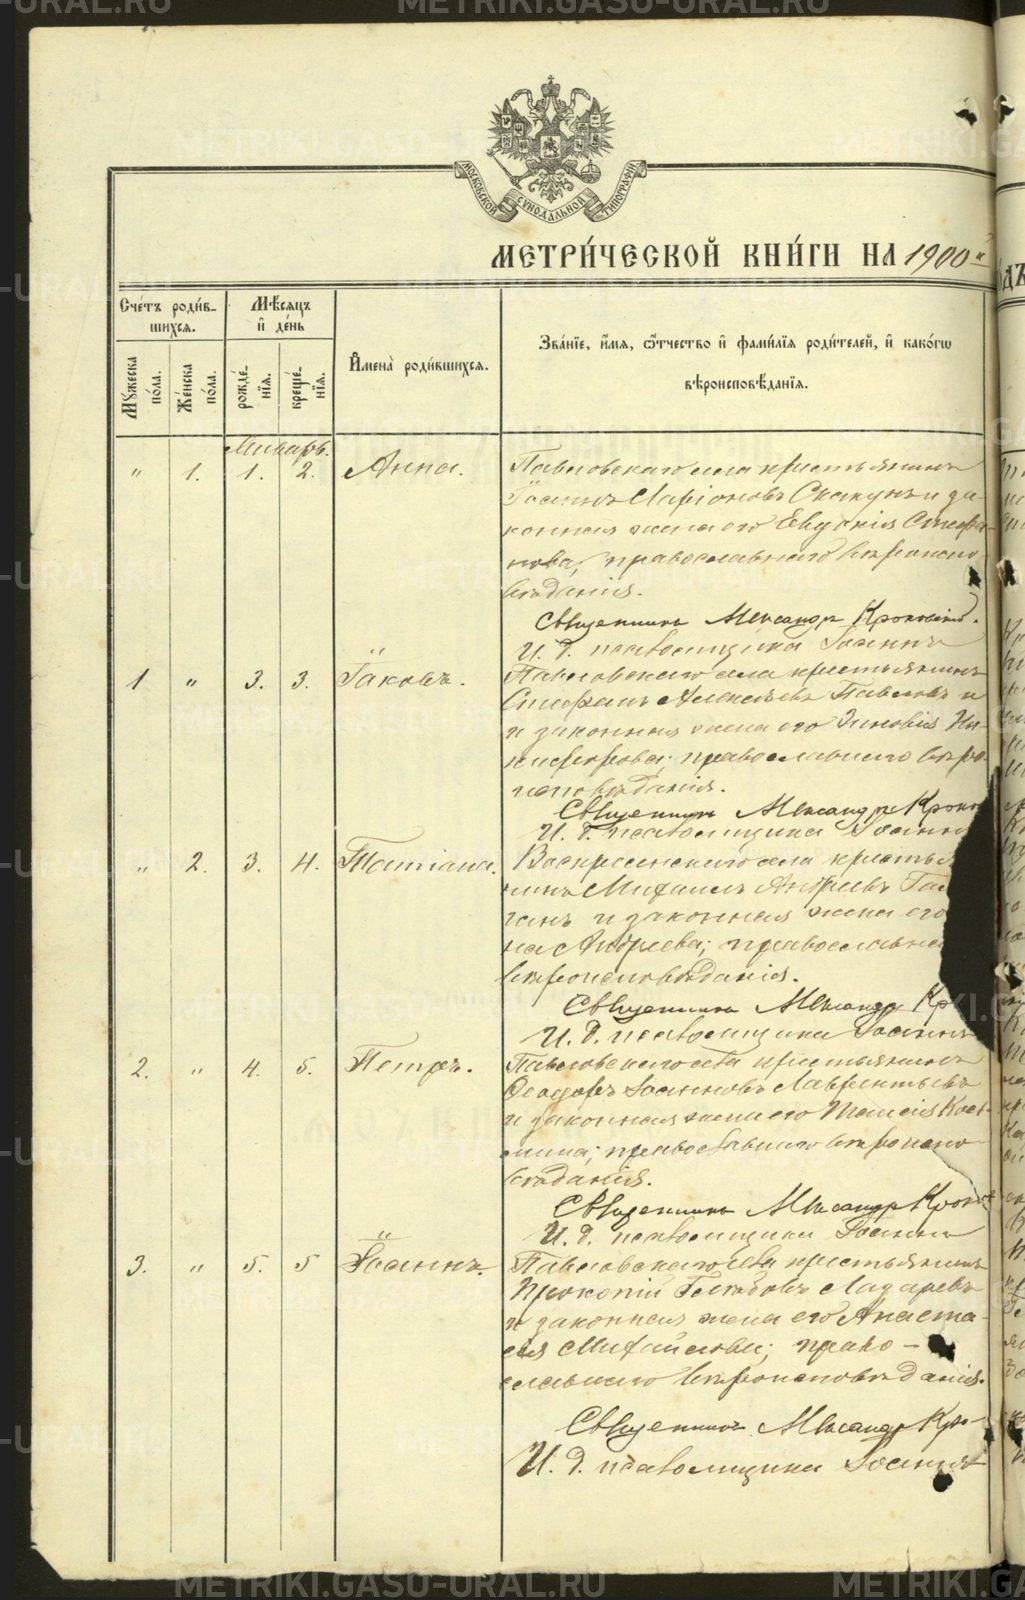 METRIKI.GASU-URAL.RU
МОСКОВСКОЙ СѴНОДАЛЬНОЙ ТИПОГРАФІИ
МЕТРИ́ЧЕСКОЙ КНИ́ГИ НА 1900
Сче́тъ роди́в-
шихся.
Мѣ́сяцъ
и҆ де́нь
И҆мена̀ роди́вшихся.
Зва́нїе, и҆́мя, ѻ҆́тчество и҆ фами́лїя роди́телей, и҆ како́гѡ
вѣроисповѣ́данїя.
Мꙋ́жеска
по́ла.
Же́нска
по́ла.
рожде́-
нїя.
креще́-
нїя.
Январь.
" 1. 1. 2. Анна.
Павловскаго села крестьянинъ
Іоаннъ Ларіоновъ Скакунъ и за-
конная жена его Евдокія Стефа-
нова, православнаго вѣроиспо-
вѣданія.
Священникъ Александръ
И. д. псаломщика Іоаннъ
1 " 3. 3. Іаковъ.
Павловскаго села крестьянинъ
Стефанъ Алексѣевъ Павловъ и
и законная жена его Зиновія Ни-
кифорова; православнаго вѣро-
исповѣданія.
Священникъ Александръ
И. д. псаломщика Іоаннъ
" 2. 3. 4. Татіана.
Воскресенскаго села крестья
нинъ Михаилъ Андреевъ
и законная жена его
на Андреева; православна
вѣроисповѣданія.
Священникъ Александръ Кр
И. д. псаломщика Іоаннъ
2. " 4. 5. Петръ.
Павловскаго села крестьянинъ
Ѳеодоръ Іоанновъ Лаврентьевъ
и законная жена его Таисія Кось-
мина; православнаго вѣроиспо-
вѣданія.
Священникъ Александръ
И. д. псаломщика Іоаннъ
3. " 5. 5 Іоаннъ.
Павловскаго села крестьянинъ
Прокопій Глѣбовъ Лазаревъ
и законная жена его Анаста-
сія Михайлова; право-
славнаго вѣроисповѣданія.
Священникъ Александръ
И. д. псаломщика Іоаннъ
METRIKI.GASU-URAL.RU